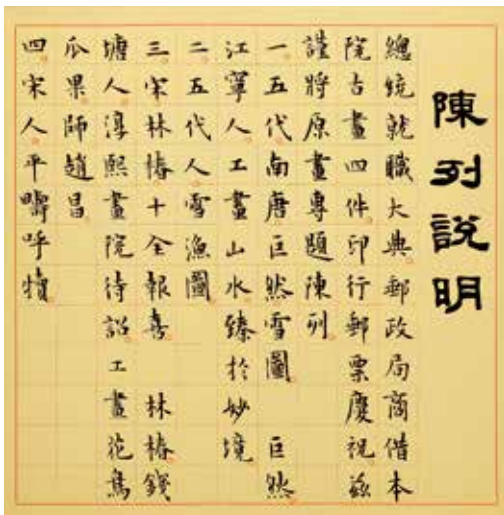 陳列說明
總統就職大典郵政局商借本
院古畫四件印行郵票慶祝茲
謹將原畫專題陳列
一五代南唐巨然雪圖　巨然
江寧人工畫山水臻於妙境
二五代人雪漁圖
三宋林椿十全報喜　林椿錢
塘人淳熙畫院待詔工畫花鳥
瓜果師趙昌
四宋人平疇呼犢